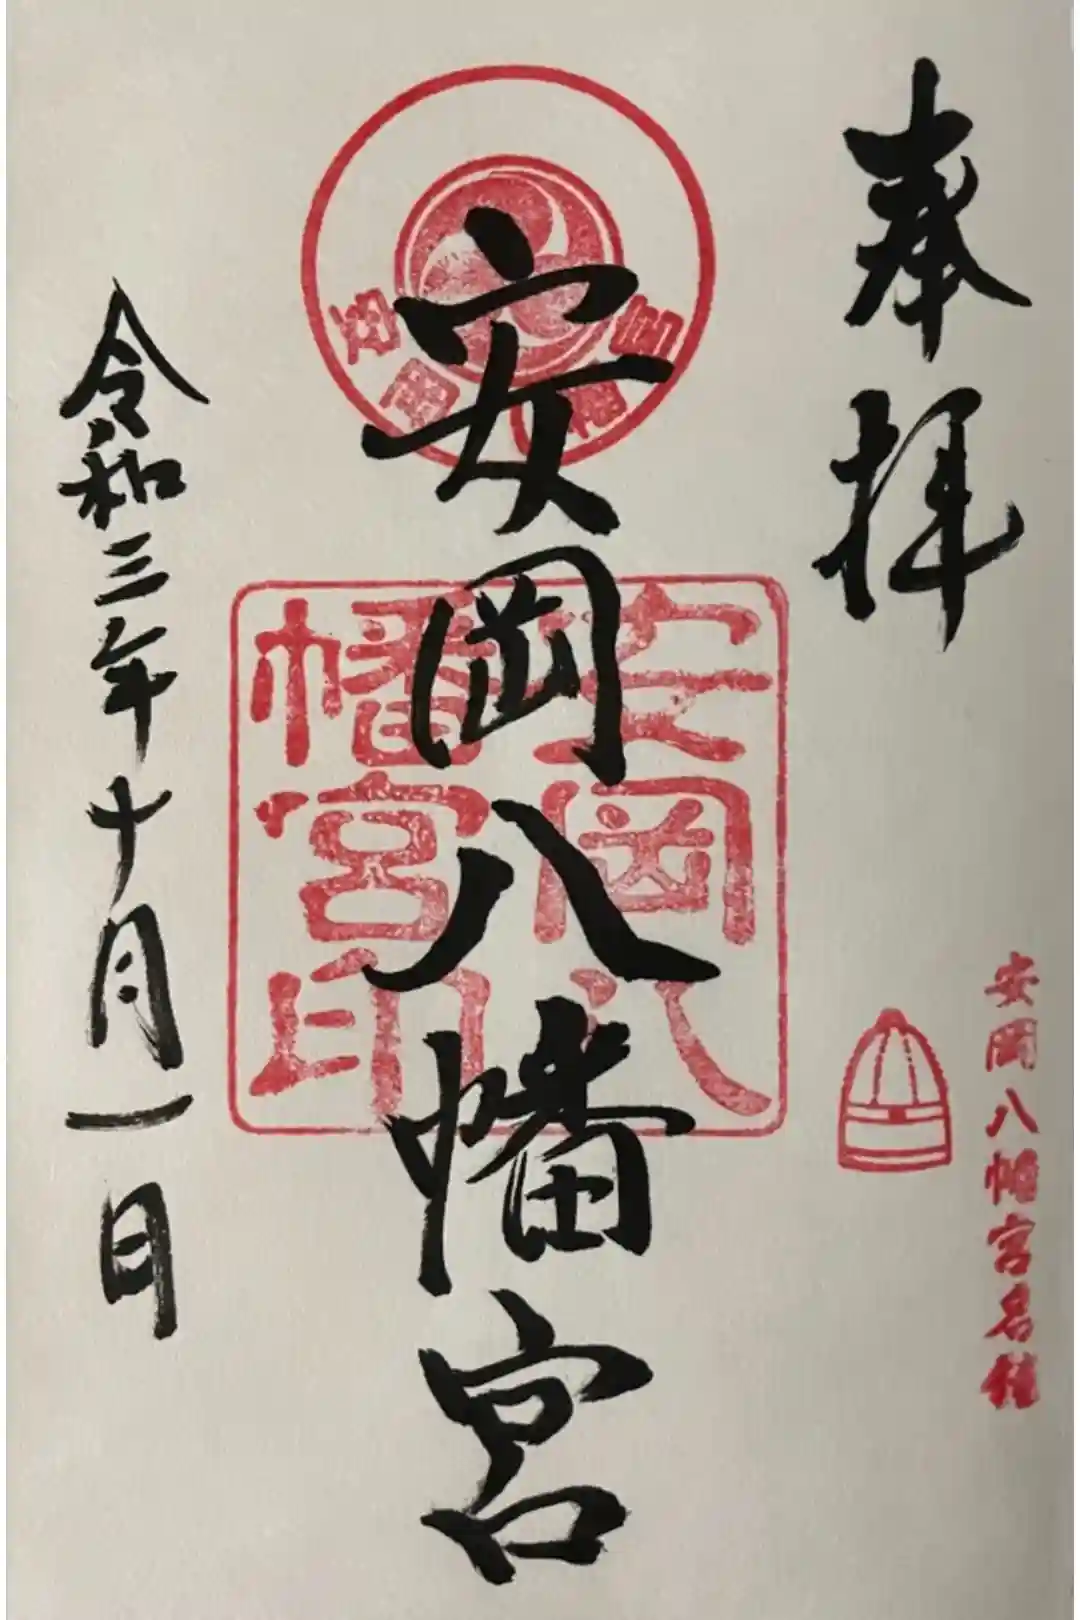 奉拝
安岡八幡宮名鐘
安岡八幡宮
安岡八幡宮
安岡八
幡宮印
令和三年十月一日